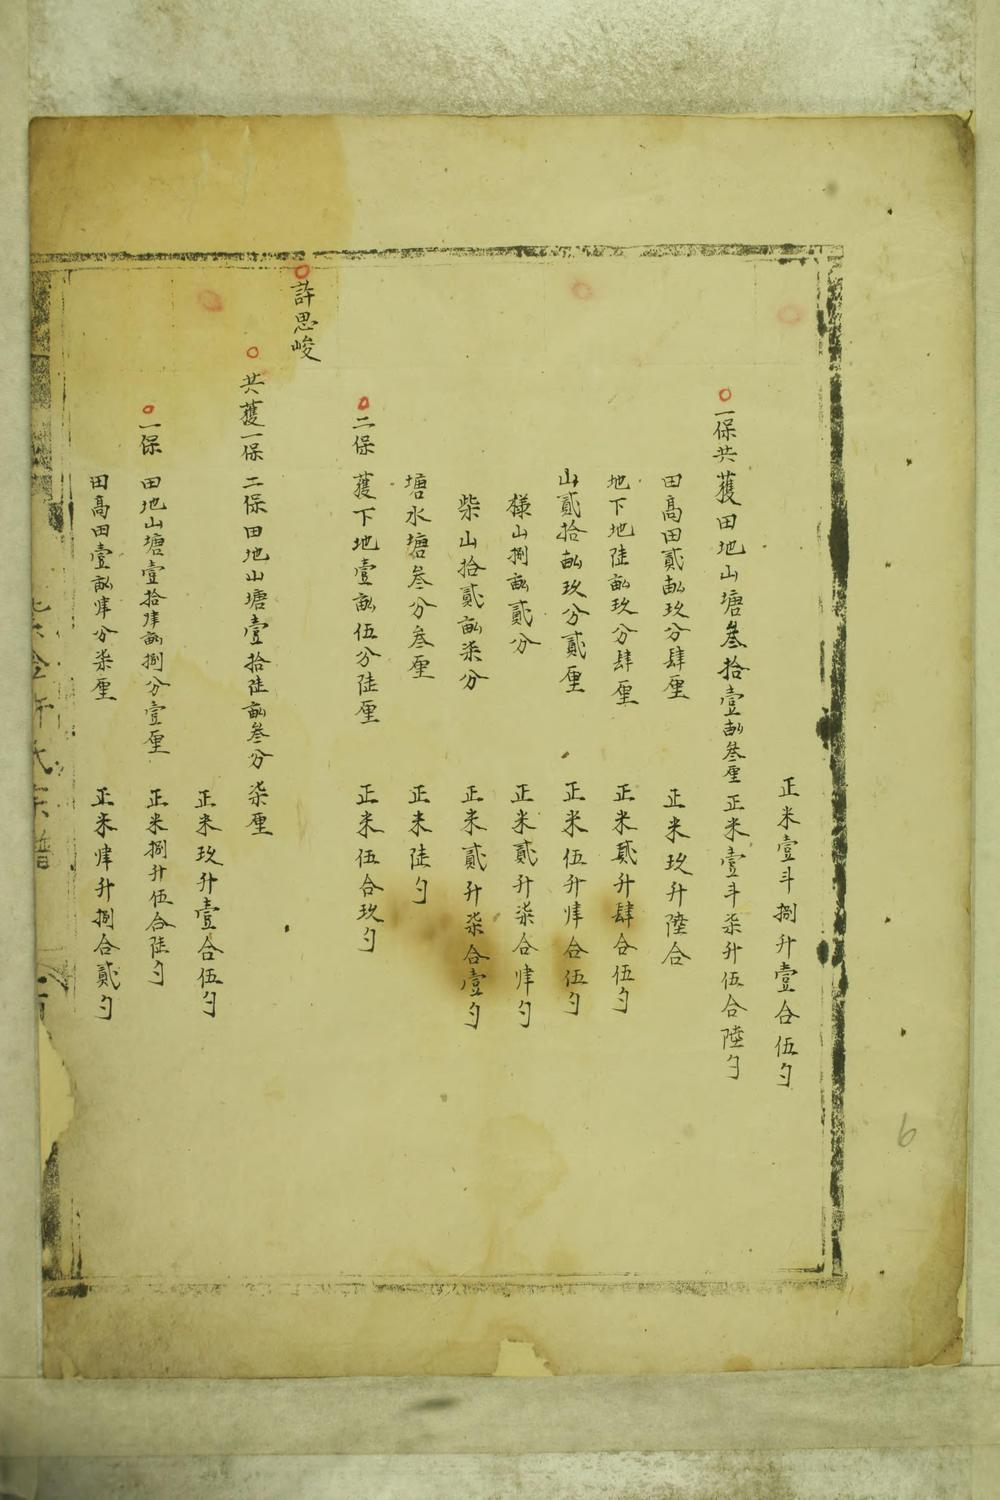 正米壹斗捌升壹合伍勺
一保共獲田地山塘叁拾壹畝叁厘正米壹斗柒升伍合陸勺
田高田貳畝玖分肆厘 正米玖升陸合
地下地陸畝玖分肆厘 正米貳升肆合伍勺
山貳拾畝玖分貳厘 正米伍升肆合伍勺
様山捌畝貳分 正米貳升柒合肆勺
柴山拾貳畝柒分 正米貳升柒合壹勺
塘水塘叁分叁厘 正米陸勺
二保 獲下地壹畝伍分陸厘 正米伍合玖勺
許思峻
共獲一保二保田地山塘壹拾陸畝叁分柒厘
正米玖升壹合伍勺
一保 田地山塘壹拾肆畝捌分壹厘 正米捌升伍合陸勺
田高田壹畝肆分柒厘 正米肆升捌合貳勺
許氏宗譜